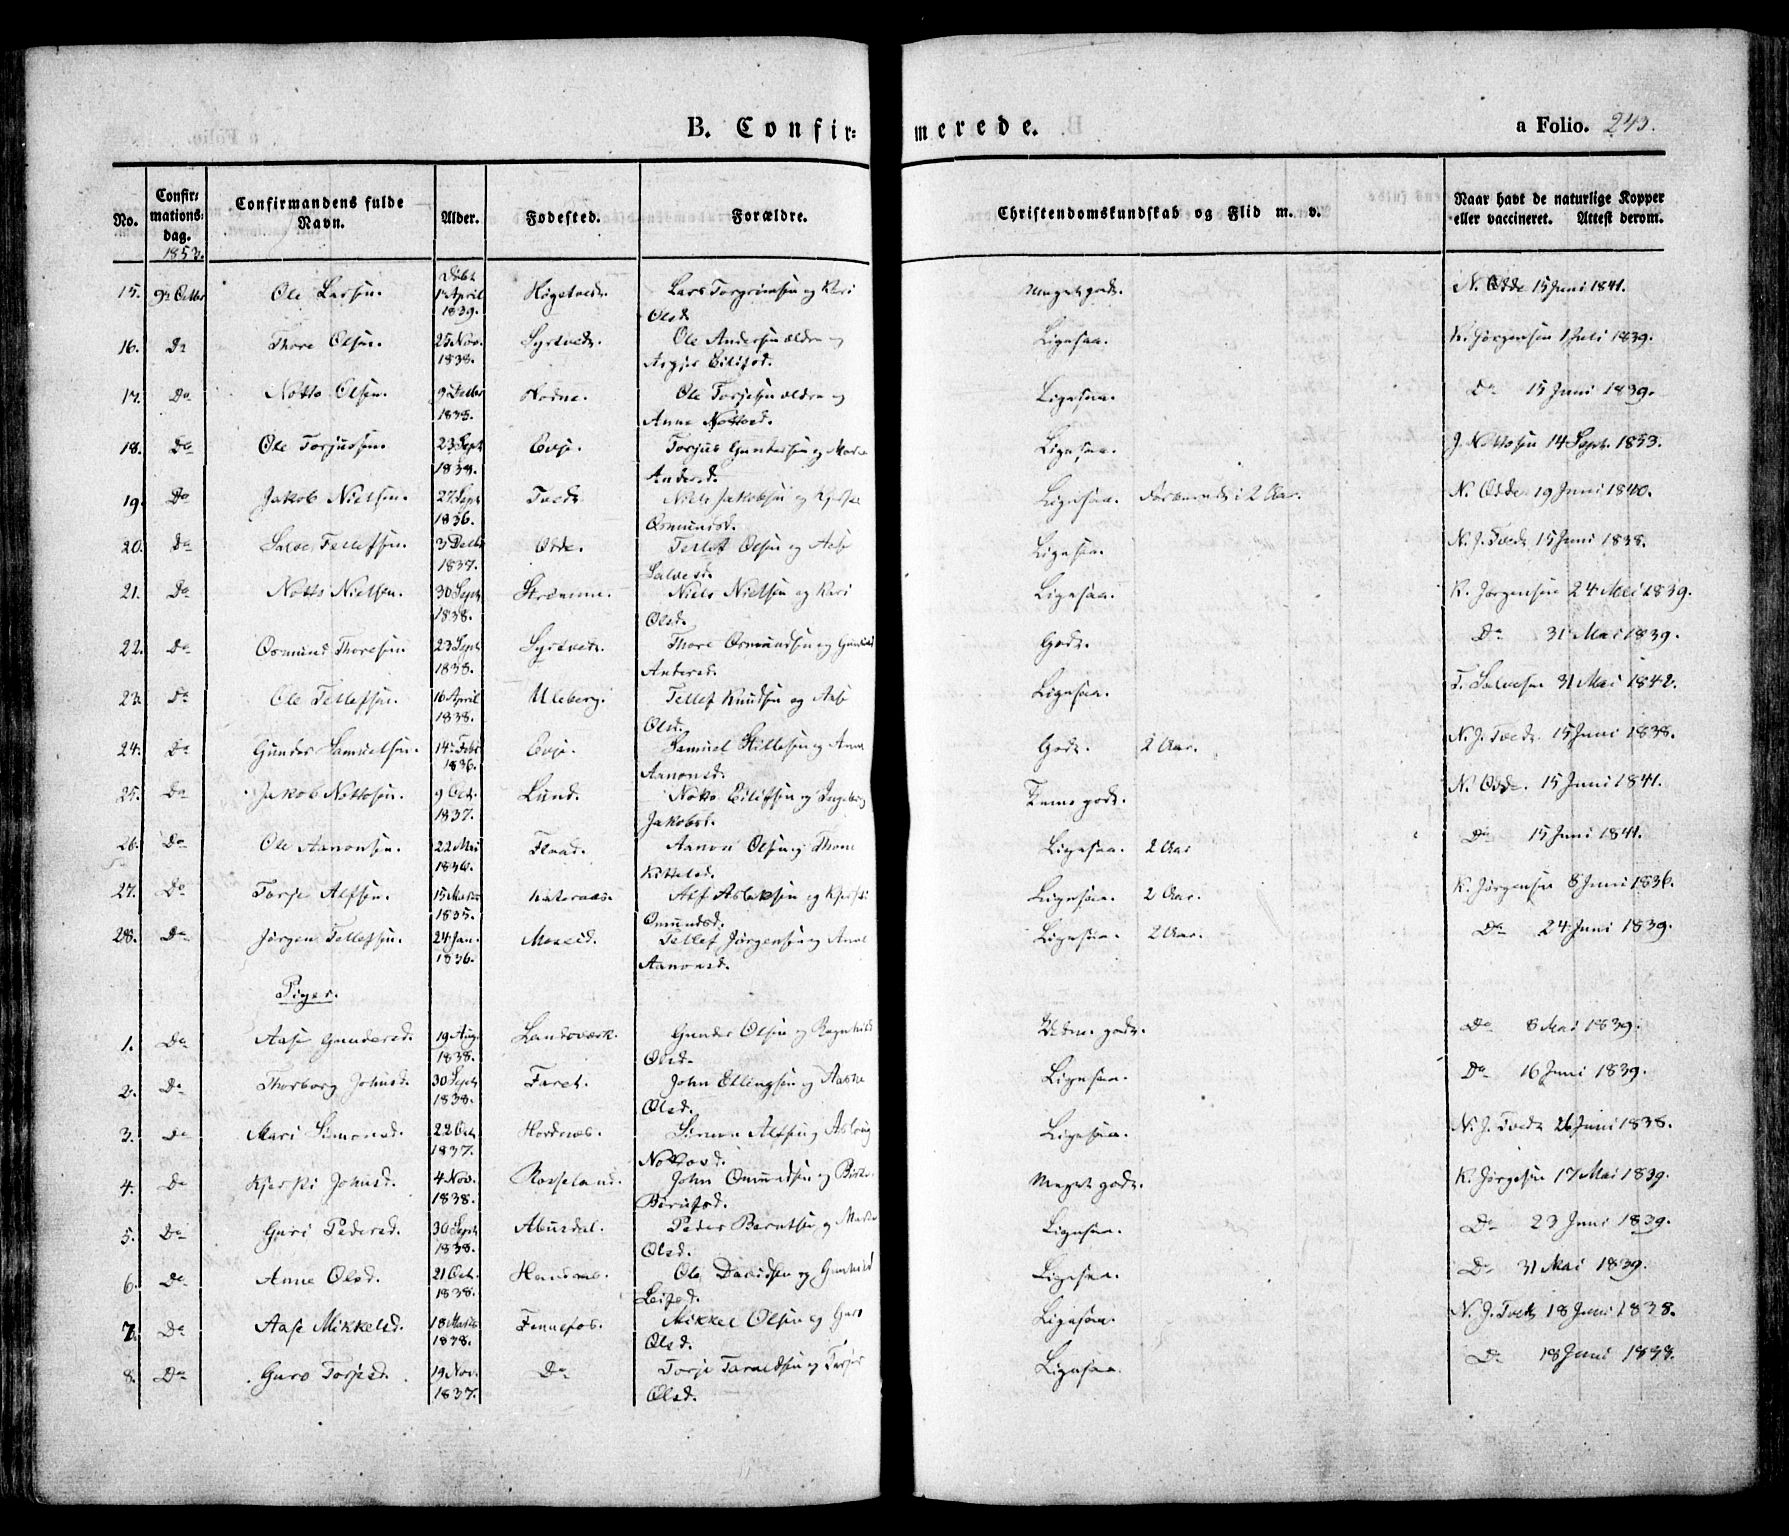 B. Confir-merede.
a Folio. 243.
No. Confirmations-dag. 1853. Confirmandens fulde Navn. Alder. Fødested. Forældre. Christendomskundskab og Flid m. v. Naar havt de naturlige Kopper eller vaccineret. Attest derom.
15. 9de Octbr Ole Larsen. Døbt 1 April 1839. Høgetveds. Lars Torgrimsen og Kari Olsd. Meget gods. N. Odde 15 Juni 1841.
16. Do Thore Olsen. 25 Nov. 1838. Syrtveds. Ole Andersen ældre og Asgjer Eilifsd. Ligesaa. K. Jørgensen 1 Juli 1839.
17. Do Notto Olsen. 9 Decbr 1838. Hodne. Ole Torjesen ældre og Anne Nottosd. Ligesaa. Do 15 Juni 1839.
18. Do Ole Torjussen. 23 Sept 1838. Evje. Torjus Gundersen og Andersd. Ligesaa. J. Nottosen 14 Sept. 1853.
19. Do Jakob Nielsen. 27 Sept 1836. Tveds. Niels Jakobsen og Osmundsd. Ligesaa. i 2 Aar. N. Odde 19 Juni 1840.
20. Do Salve Tellefsen. 3 Decbr 1837. Odde. Tellef Olsen og Aase Salvesd. Ligesaa. N. J. Tveds 15 Juni 1838.
21. Do Notto Nielsen. 30 Sept 1838. Strømme. Niels Nielsen og Kari Olsd. Ligesaa. K. Jørgensen 24 Mai 1839.
22. Do Osmund Thoresen. 23 Sept 1838. Syrtveds. Thore Osmundsen og Gunhild Andersd. Gods. Do 31 Mai 1839.
23. Do Ole Tellefsen. 16 April 1838. Uleberg. Tellef Knudsen og Aase Olsd. Ligesaa. T. Salvesen 31 Mai 1842.
24. Do Gunder Samuelsen. 14 Febr 1836. Evje. Samuel og Anne Aanonsd. Gods. 2 Aar. N. J. Tveds 15 Juni 1838.
25. Do Jakob Nottosen. 9 Oct. 1837. Lund. Noto Eilifsen og Ingeborg Jakobsd. Temme gods. N. Odde. 15 Juni 1841.
26. Do Ole Aanonsen. 22 Mai 1836. Flaad. Aanon Olsen og Thone Kittelsd. Ligesaa. 2 Aar Do 15 Juni 1841.
27. Do Torje Alfsen. 15 Marts 1835. Alf Aslaksen og Kjersti Omundsd. Ligesaa. 2 Aar. K. Jørgensen 8 Juni 1836.
28. Do Jørgen Tellefsen. 24 Jan. 1836. Moseid. Tellef Jørgensen og Anne Aanonsd. Ligesaa. 2 Aar. Do 24 Juni 1839.
Piger.
1. Do Aase Gundersd. 19 Aug. 1838. Landsværk. Gunder Olsen og Ragnhild Olsd. gods. Do 8 Mai 1839.
2. Do Thorborg Johnsd. 30 Sept 1838. Faret. John Ellingsen og Olsd. Ligesaa. Do 16 Juni 1839.
3. Do Mari Simonsd. 22 Oct. 1837. Hordnes. Simon Alfsen og Aslaug Nottosd. Ligesaa. N. J. Tveds 26 Juni 1838.
4. Do Kjersti Johnsd. 4 Nov. 1838. Rosseland. John Omundsen og Børufsd. Meget gods. K. Jørgesen 17 Mai 1839.
5. Do Guri Pedersd. 30 Sept 1838. Abusdal. Peder Berntsen og Olsd. Ligesaa. Do 23 Juni 1839.
6. Do Anne Olsd. 21 Oct. 1838. Ole Davidsen og Gunnild Leifsd. Ligesaa. Do 31 Mai 1839.
7. Do Aase Mikkelsd. 18 Marts 1838. Fennefos. Mikkel Olsen og Guro Olsd. Ligesaa. N. J. Tvets 18 Juni 1838.
8. Do Guro Torjesd. 19 Nov. 1837. Do Torje Taraldsen og Olsd. Ligesaa. Do 18 Juni 1838.